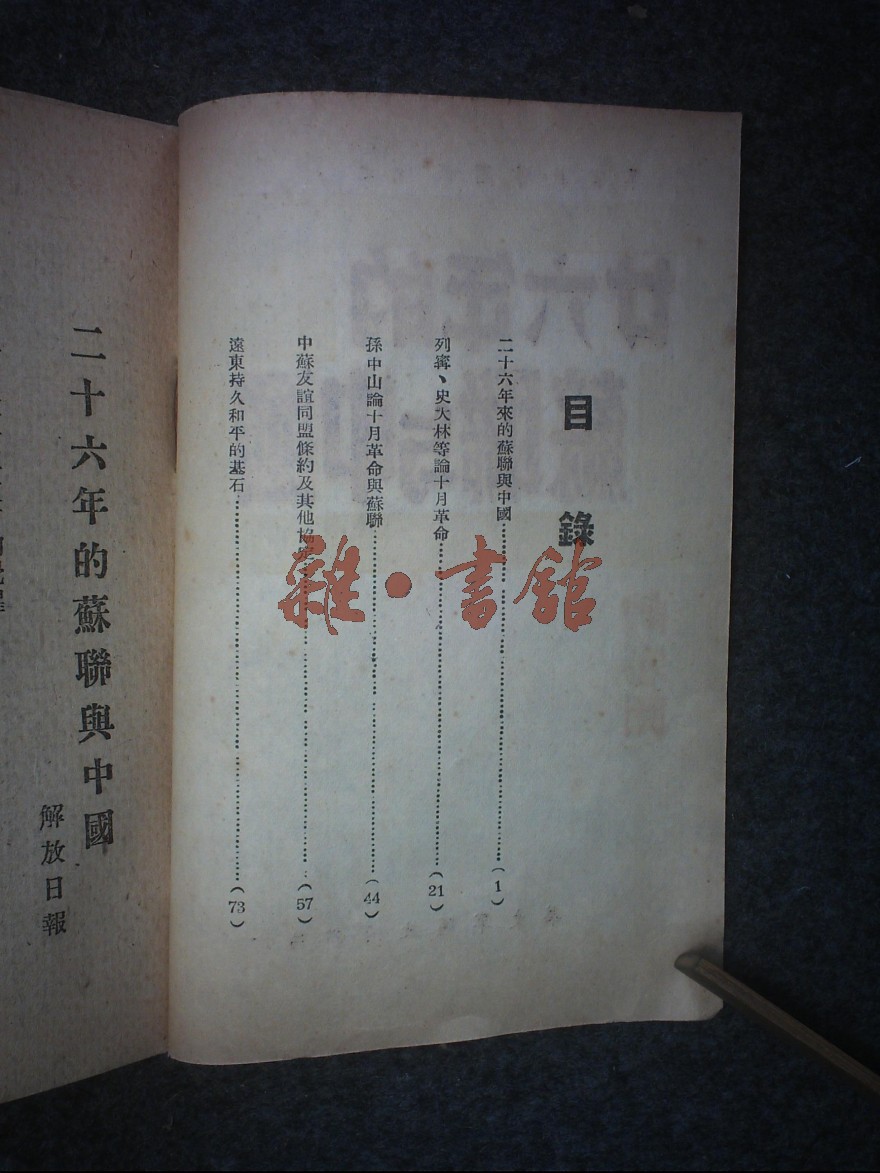 目錄
二十六年來的蘇聯與中國……(1)
列寧、史大林等論十月革命……(21)
孫中山論十月革命與蘇聯……(44)
中蘇友誼同盟條約及其他協定……(57)
遠東持久和平的基石……(73)
雜·書館
二十六年的蘇聯與中國
解放日報